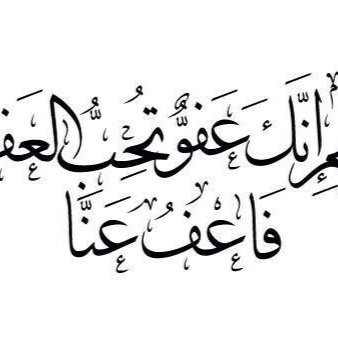 إِنَّكَ عَفُوٌّ تُحِبُّ العَف
فَاعْفُ عَنَّا